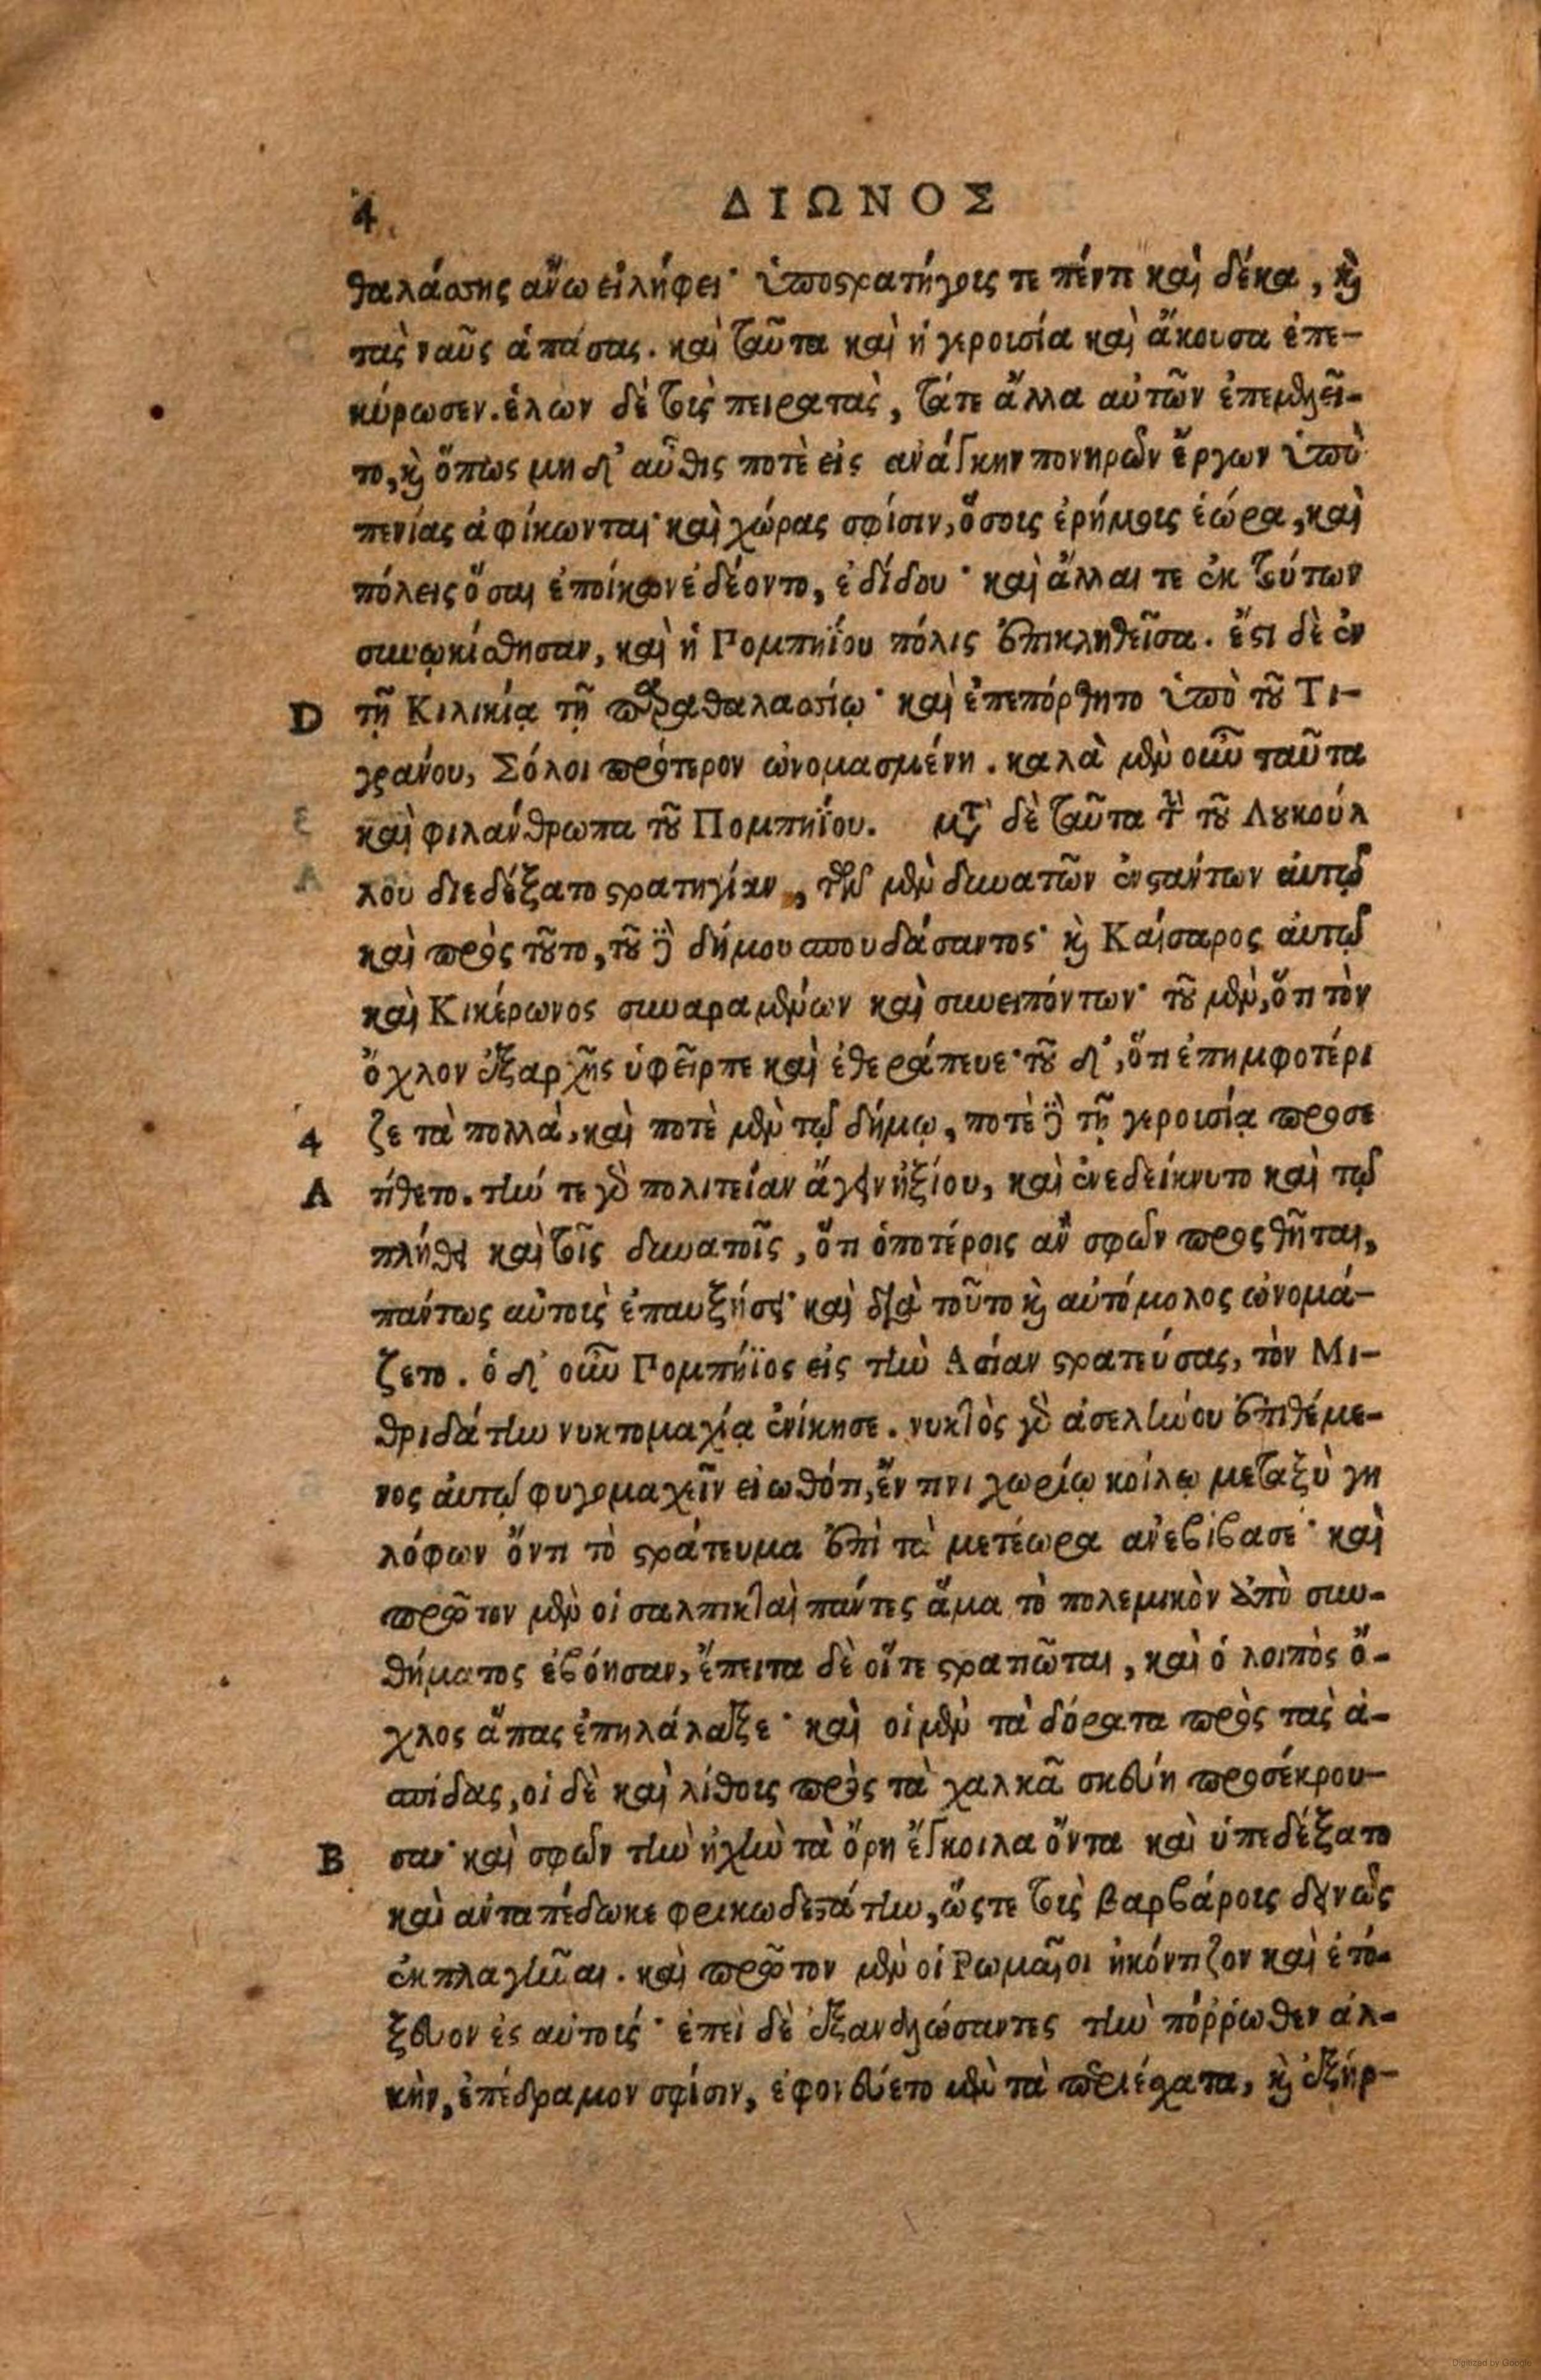 4 ΔΙΩΝΟΣ
θαλάσσης ἄνω εἰλήφει· ὑποστρατήγοις τε πέντε καὶ δέκα, καὶ
τὰς ναῦς ἁπάσας. καὶ ταῦτα καὶ ἡ γερουσία καὶ ἄκουσα ἐπε-
κύρωσεν. ἑλὼν δὲ τοὺς πειρατὰς, τάτε ἄλλα αὐτῶν ἐπεμελεῖ-
το, καὶ ὅπως μηδ' αὖθις ποτὲ εἰς ἀνάγκην πονηρῶν ἔργων ὑπὸ
πενίας ἀφίκωνται· καὶ χώρας σφίσιν, ὅσοις ἐρήμοις ἑώρα, καὶ
πόλεις ὅσαι ἐποίκων ἐδέοντο, ἐδίδου· καὶ ἄλλαι τε ἐκ τούτων
συνῳκίσθησαν, καὶ ἡ Πομπηΐου πόλις ἐπικληθεῖσα. ἔστι δὲ ἐν
D τῇ Κιλικίᾳ τῇ παραθαλασσίῳ· καὶ ἐπεπόρθητο ὑπὸ τοῦ Τι-
γράνου, Σόλοι πρότερον ὠνομασμένη. καλὰ μὲν οὖν ταῦτα
καὶ φιλάνθρωπα τοῦ Πομπηΐου. μετὰ δὲ ταῦτα τὴν τοῦ Λουκούλ
λου διεδέξατο στρατηγίαν, τῶν μὲν δυνατῶν ἐνστάντων αὐτῷ
καὶ πρὸς τοῦτο, τοῦ δὲ δήμου σπουδάσαντος· καὶ Καίσαρος αὐτῷ
καὶ Κικέρωνος συναραμένων καὶ συνειπόντων· τοῦ μὲν, ὅτι τὸν
ὄχλον ἐξαρχῆς ὑφεῖρπε καὶ ἐθεράπευε· τοῦ δ', ὅτι ἐπημφοτέρι
4 ζε τὰ πολλὰ, καὶ ποτὲ μὲν τῷ δήμῳ, ποτὲ δὲ τῇ γερουσίᾳ προσε
A τίθετο. τήν τε γὰρ πολιτείαν ἄγειν ἠξίου, καὶ ἐνεδείκνυτο καὶ τῷ
πλήθει καὶ τοῖς δυνατοῖς, ὅτι ὁποτέροις ἂν σφῶν προσθῆται,
πάντως αὐτοὺς ἐπαυξήσει· καὶ διὰ τοῦτο καὶ αὐτόμολος ὠνομά-
ζετο. ὁ δ' οὖν Πομπήϊος εἰς τὴν Ἀσίαν στρατεύσας, τὸν Μι-
θριδάτην νυκτομαχίᾳ ἐνίκησε. νυκτὸς γὰρ ἀσελήνου ἐπιθέμε-
νος αὐτῷ φυγομαχεῖν εἰωθότι, ἔν τινι χωρίῳ κοίλῳ μεταξὺ γη
λόφων ὄντι τὸ στράτευμα ἐπὶ τὰ μετέωρα ἀνεβίβασε· καὶ
πρῶτον μὲν οἱ σαλπικταὶ πάντες ἅμα τὸ πολεμικὸν ἀπὸ συν-
θήματος ἐβόησαν, ἔπειτα δὲ οἵτε στρατιῶται, καὶ ὁ λοιπὸς ὄ-
χλος ἅπας ἐπηλάλαξε· καὶ οἱ μὲν τὰ δόρατα πρὸς τὰς ἀ-
σπίδας, οἱ δὲ καὶ λίθοις πρὸς τὰ χαλκᾶ σκεύη προσέκρου-
B σαν· καὶ σφῶν τὴν ἠχὴν τὰ ὄρη ἔγκοιλα ὄντα καὶ ὑπεδέξατο
καὶ ἀνταπέδωκε φρικωδεστάτην, ὥςτε τοὺς βαρβάροις δεινῶς
ἐκπλαγῆναι. καὶ πρῶτον μὲν οἱ Ῥωμαῖοι ἠκόντιζον καὶ ἐτό-
ξευον ἐς αὐτούς· ἐπεὶ δὲ ἐξαναλώσαντες τὴν πόῤῥωθεν ἀλ-
κὴν, ἐπέδραμον σφίσιν, ἐφονεύετο μὲν τὰ περιέσχατα, καὶ ἐξήρ-